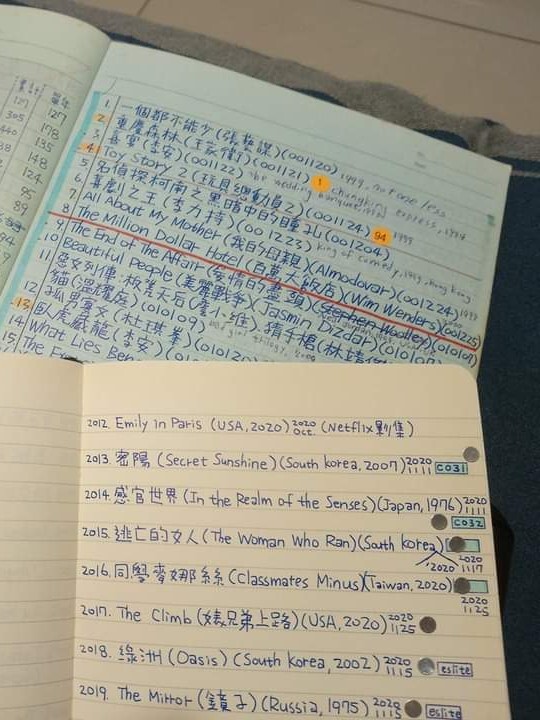 累計 單年
127 127
305 178
440 135
38 148
124
95
89
94
1. 一個都不能少 (張藝謀) (001120) 1999, not one less
2. 重慶森林 (王家衛) (001121) 1 chungking express, 1994
3. 喜宴 (李安) (001122) the wedding banquet, 1993
4. Toy Story 2 (玩具總動員2) (001124) 94 1999
5. 名偵探柯南之黑暗中的瞳孔 (001204)
6. 喜劇之王 (李力持) (001223) king of comedy, 1999, Hong Kong
7. All About My Mother (我的母親) (Almodovar) (001224) 1999
8. The Million Dollar Hotel (百萬大飯店) (Wim Wenders) (001225) 2000
9. The End of the Affair (愛情的盡頭) (Stephen Woolley) (010107)
10. Beautiful People (美麗戰爭) (Jasmin Dizdar) (010107)
11. 惡女列傳: 板凳 太后 (小維) 猜手槍 (林靖傑)
貓 (溫耀庭) (010109)
12. 孤男寡女 (杜琪峯) (010120)
13. 臥虎藏龍 (李安)
14. What Lies Ben
15. The E
2012. Emily in Paris (USA, 2020) 2020 Oct. (Netflix影集)
2013. 密陽 (Secret Sunshine) (South Korea, 2007) 2020 1111 C031
2014. 感官世界 (In the Realm of the Senses) (Japan, 1976) 2020 1111 C032
2015. 逃亡的女人 (The Woman Who Ran) (South Korea) '2020 2020 1117
2016. 同學麥娜絲 (Classmates Minus) (Taiwan, 2020) 2020 1125
2017. The Climb (婊兄弟上路) (USA, 2020) 2020 1125
2018. 綠洲 (Oasis) (South Korea, 2002) 2020 1115 eslite
2019. The Mirror (鏡子) (Russia, 1975) 2020 1115 eslite